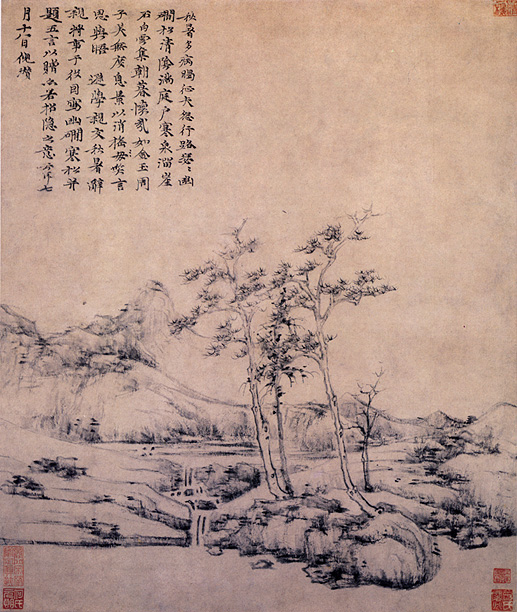 秋暑多病暍征夫怨行路瑟〻幽
澗松清陰滿庭戶寒泉溜崖
石白雲集朝暮懷哉如金玉周
子美無度息景以消搖笑言
思與晤 遜學親友秋暑辭
親將事于役因寫幽澗寒松并
題五言以贈亦若招隱之意云耳七
月十八日倪瓚